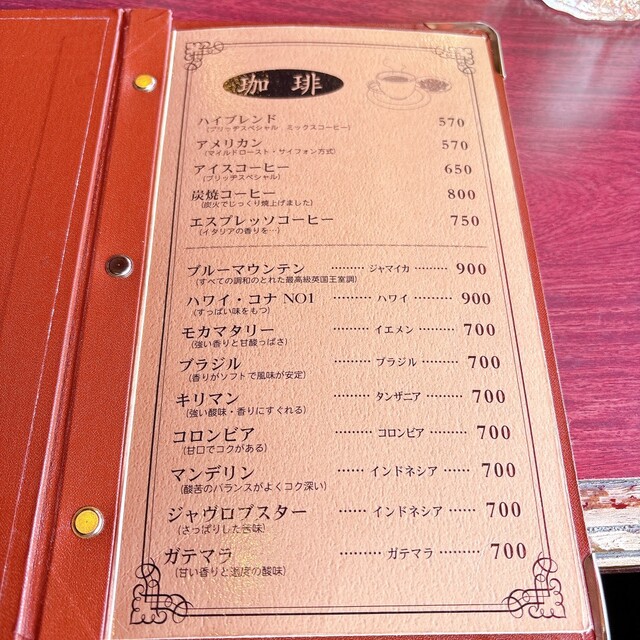 珈琲
ハイブレンド 570
(ブリッヂスペシャル ミックスコーヒー)
アメリカン 570
(マイルドロースト・サイフォン方式)
アイスコーヒー 650
(ブリッヂスペシャル)
炭焼コーヒー 800
(炭火でじっくり焼上げました)
エスプレッソコーヒー 750
(イタリアの香りを…)
ブルーマウンテン ……… ジャマイカ ……… 900
(すべての調和のとれた最高級英国王室調)
ハワイ・コナ NO1 ……… ハワイ ……… 900
(すっぱい味をもつ)
モカマタリー ……… イエメン ……… 700
(強い香りと甘酸っぱさ)
ブラジル ……… ブラジル ……… 700
(香りがソフトで風味が安定)
キリマン ……… タンザニア ……… 700
(強い酸味・香りにすぐれる)
コロンビア ……… コロンビア ……… 700
(甘口でコクがある)
マンデリン …… インドネシア …… 700
(酸苦のバランスがよくコク深い)
ジャヴロブスター …… インドネシア …… 700
(さっぱりした苦味)
ガテマラ ……… ガテマラ ……… 700
(甘い香りと適度の酸味)